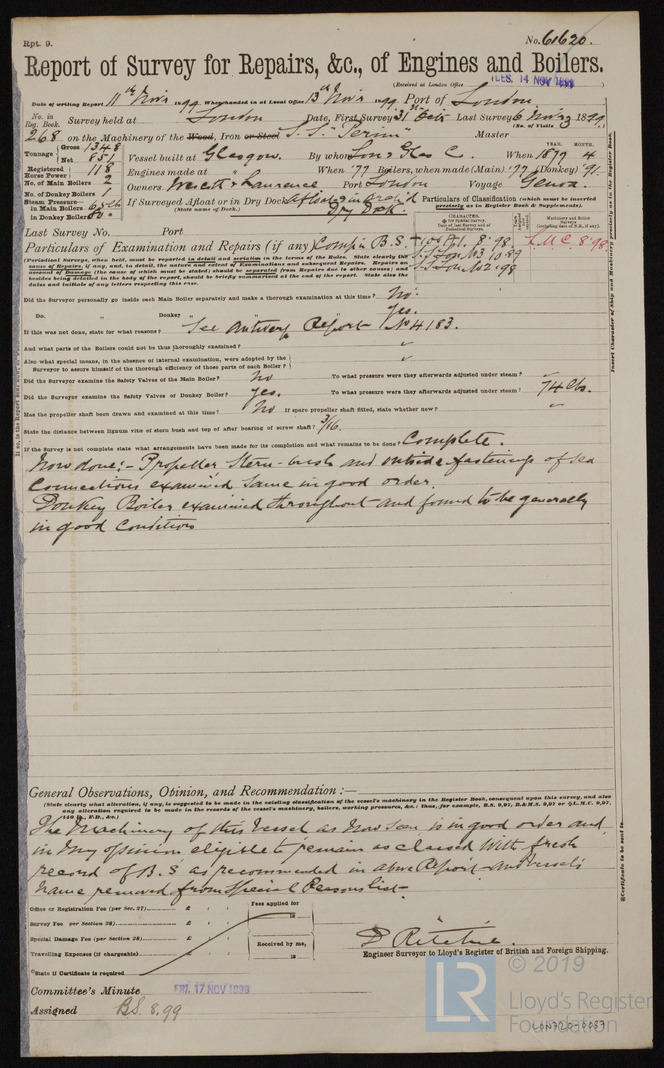 Rpt. 9.
No. 61620.
Report of Survey for Repairs, &c., of Engines and Boilers.
(Received at London Office TUES. 14 NOV 1899)
Date of writing Report 11th Novr 1899 When handed in at Local Office 13th Novr 1899 Port of London
No. in Reg. Book. Survey held at London Date, First Survey 31st Octr Last Survey 6 Novr 1899
(No. of Visits 3)
268 on the Machinery of the Wood, Iron or Steel S.S. "Perim" Master
Tonnage Gross 1348 Net 851 Vessel built at Glasgow. By whom Lon & Glas C. When 1879 4
YEAR. MONTH.
Registered Horse Power 118 Engines made at " When '77 Boilers, when made (Main) '77 (Donkey) '91.
No. of Main Boilers 2 Owners Port London Voyage Genoa.
No. of Donkey Boilers 1
Steam Pressure in Main Boilers 65 lb in Donkey Boiler 60.
If Surveyed Afloat or in Dry Dock Afloat & in Dry Dock.
(State name of Dock.)
Particulars of Classification (which must be inserted precisely as in Register Book & Supplements).
CHARACTER. for Special Survey. Date of last Survey and of Periodical Surveys.
Machinery and Boiler Surveys (including date of N.B., if any).
+100 A1. 8.98 L.M.C. 8.98
S.S. Lon. No3 10.89
S.S. Lon. No2.98
Last Survey No. Port
Particulars of Examination and Repairs (if any) Comp'n B.S.
(Periodical Surveys, when held, must be reported in detail and seriatim in the terms of the Rules. State clearly the cause of Repairs, if any, and, in detail, the nature and extent of Examinations and subsequent Repairs. Repairs on account of Damage (the cause of which must be stated) should be separated from Repairs due to other causes; and besides being detailed in the body of the report, should be briefly summarised at the end of the report. State also the dates and initials of any letters respecting this case.
Did the Surveyor personally go inside each Main Boiler separately and make a thorough examination at this time? No.
Do. " Donkey " " " Yes.
If this was not done, state for what reasons? See Antwerp Report No 4183.
And what parts of the Boilers could not be thus thoroughly examined? ✓
Also what special means, in the absence of internal examination, were adopted by the Surveyor to assure himself of the thorough efficiency of those parts of each Boiler? ✓
Did the Surveyor examine the Safety Valves of the Main Boiler? No To what pressure were they afterwards adjusted under steam? ✓
Did the Surveyor examine the Safety Valves of Donkey Boiler? Yes. To what pressure were they afterwards adjusted under steam? 74 lbs.
Has the propeller shaft been drawn and examined at this time? No If spare propeller shaft fitted, state whether new? ✓
State the distance between lignum vitæ of stern bush and top of after bearing of screw shaft? 3/16.
If the Survey is not complete state what arrangements have been made for its completion and what remains to be done? Complete.
Now done:- Propeller Stern-bush and outside fastenings of Sea
Connections examined Same in good order.
Donkey Boiler examined throughout and found to be generally
in good Condition
General Observations, Opinion, and Recommendation:—
(State clearly what alteration, if any, is suggested to be made in the existing classification of the vessel's machinery in the Register Book, consequent upon this survey, and also any alteration required to be made in the records of the vessel's machinery, boilers, working pressures, &c.: thus, for example, B.S. 9,97, B.&M.S. 9,97 or L.M.C. 9,97, 140 lb., F.D., &c.)
The Machinery of this Vessel as Now Seen is in good order and
in my opinion eligible to remain as classed with fresh
record of B.S. as recommended in above Report. and vessels
Name removed from Special Reasons list
Office or Registration Fee (per Sec. 27) £ : : Fees applied for
Survey Fee (per Section 28) £ : : 18
Special Damage Fee (per Section 28) £ : : Received by me,
Travelling Expenses (if chargeable) £ : : 18
State if Certificate is required
P Ritchie.
Engineer Surveyor to Lloyd's Register of British and Foreign Shipping.
Committee's Minute FRI. 17 NOV 1899
Assigned B.S. 8.99
Insert Character of Ship and Machinery precisely as in the Register Book.
Certificate to be sent to
LR
© 2019
Lloyd's Register
Foundation
LON720-0087